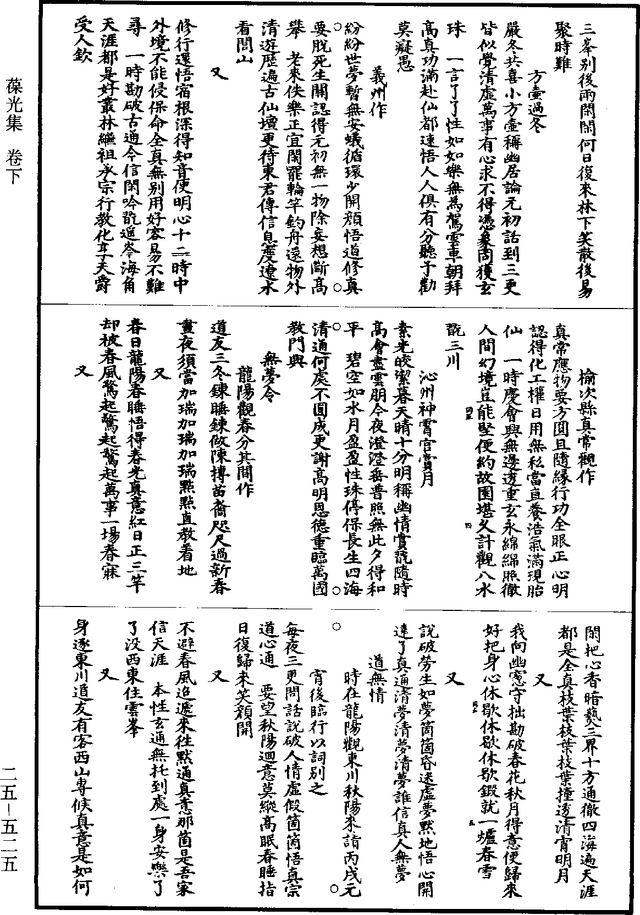 三峯别後兩閒閒何日復來林下笑散後易
聚時難
方壺過冬
嚴冬共喜小方壺稱幽居論元初話到三更
皆似覺清虛萬事有心求不得憑象罔獲玄
珠　一言了了性如如樂無為駕雲車朝拜
高真功滿赴仙都速悟人人俱有分聽予勸
莫癡愚
義州作
紛紛世夢暫無安蟻循環少開顏悟道修真
要脫死生關認得元初無一物除妄想斷高
攀　老來佚樂正宜閑罷輪竿釣舟還物外
清遊歷遍古仙壇更待東君傳信息度遼水
看閭山
又
修行還悟宿根深得知音便明心十二時中
外境不能侵保命全真無别用好容易不難
尋　一時勘破古通今信閑吟翫遥岑海角
天涯都是好叢林繼祖承宗行教化享天爵
受人欽
榆次縣真常觀作
真常應物要方圓且隨緣行功全眼正心明
認得化工權日用無私當直養浩氣滿現胎
仙　一時慶會興無邊透重玄永綿綿照徹
人間幻境豈能堅便約故園堪久計觀八水
翫三川
沁州神霄宮賞月
素光皎潔暮天晴十分明稱幽情賞翫隨時
高會盡雲朋今夜澄澄無普照無此夕得和
平　碧空如水月盈盈性珠停保長生四海
清通何處不圓成更謝高明恩德重臨萬國
教門興
無夢令
龍陽觀春分其間作
道友三冬鍊睡鍊倣陳摶苗裔咫尺過新春
晝夜須當加瑞加瑞加瑞點點直教看地
又
春日龍陽春睡悟得春光真意紅日正三竿
却被春風驚起驚起驚起萬事一場春寐
又
閑把心香暗爇三界十方通徹四海遍天涯
都是全真枝葉枝葉枝葉撞透清霄明月
又
我向幽窻守拙勘破春花秋月得意便歸來
好把身心休歇休歇休歇鍛就一爐春雪
又
說破勞生如夢箇箇昏迷虛夢默地悟心開
達了真通清夢清夢清夢誰信真人無夢
道無情
時在龍陽觀東川秋陽來請丙戌元
宵後臨行以詞别之
每夜三更閑話說破人情虛假箇箇悟真宗
道心通　要望秋陽迴意莫縱高眠春睡指
日復歸來笑顏開
又
不避春風迢遞來往默通真意那箇是吾家
信天涯　本性玄通無托到處一身安樂了
了没西東住雲峯
又
身逐東川道友有客西山專候真意是如何
葆光集　卷下
二五—五二五